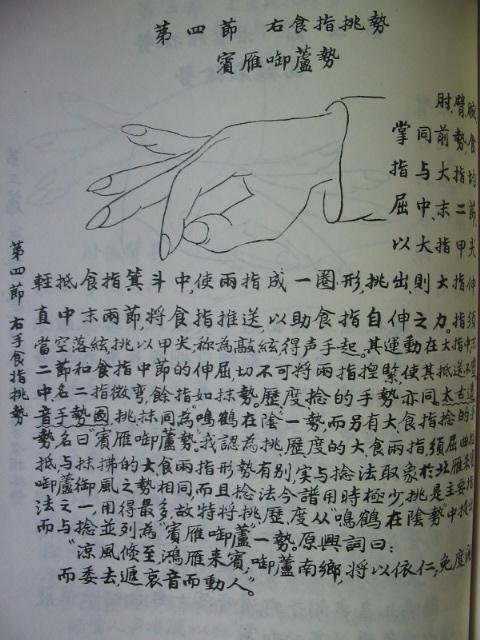 第四節 右食指挑勢
賓雁啣蘆勢
肘、臂、腕、
掌同前勢,食
指與大指均
屈中、末二節,
以大指甲尖
輕抵食指箕斗中,使兩指成一圈形,挑出,則大指伸
直中末兩節,將食指推送,以助食指自伸之力。指須
當空落絃,挑以甲尖,称為敵絃得声手起。其運動在大指中末
二節和食指中節的伸屈,切不可將兩指揑緊,使其抵送不靈
中名二指微弯,餘指如抹勢。歷度捻的手勢亦同,太古遺
音手勢圖,挑、抹同為“鳴鶴在陰”一勢,而另有大食指捻的手
勢名曰“賓雁啣蘆勢”。我認為挑歷度的大食兩指,須屈曲
抵,与抹拂的大食兩指形勢有别,实与捻法取象於北雁
啣蘆御風之勢相同,而且捻法今譜用時極少,挑是主要指
法之一,用得最多,故特將挑歷度从“鳴鶴在陰勢”中
而与捻並列為“賓雁啣蘆”一勢。原興詞曰:
“凉風倐至,鴻雁来賓,啣蘆南鄉,將以依仁,免度
而委去,遞哀音而動人”。
第四節 右手食指挑勢